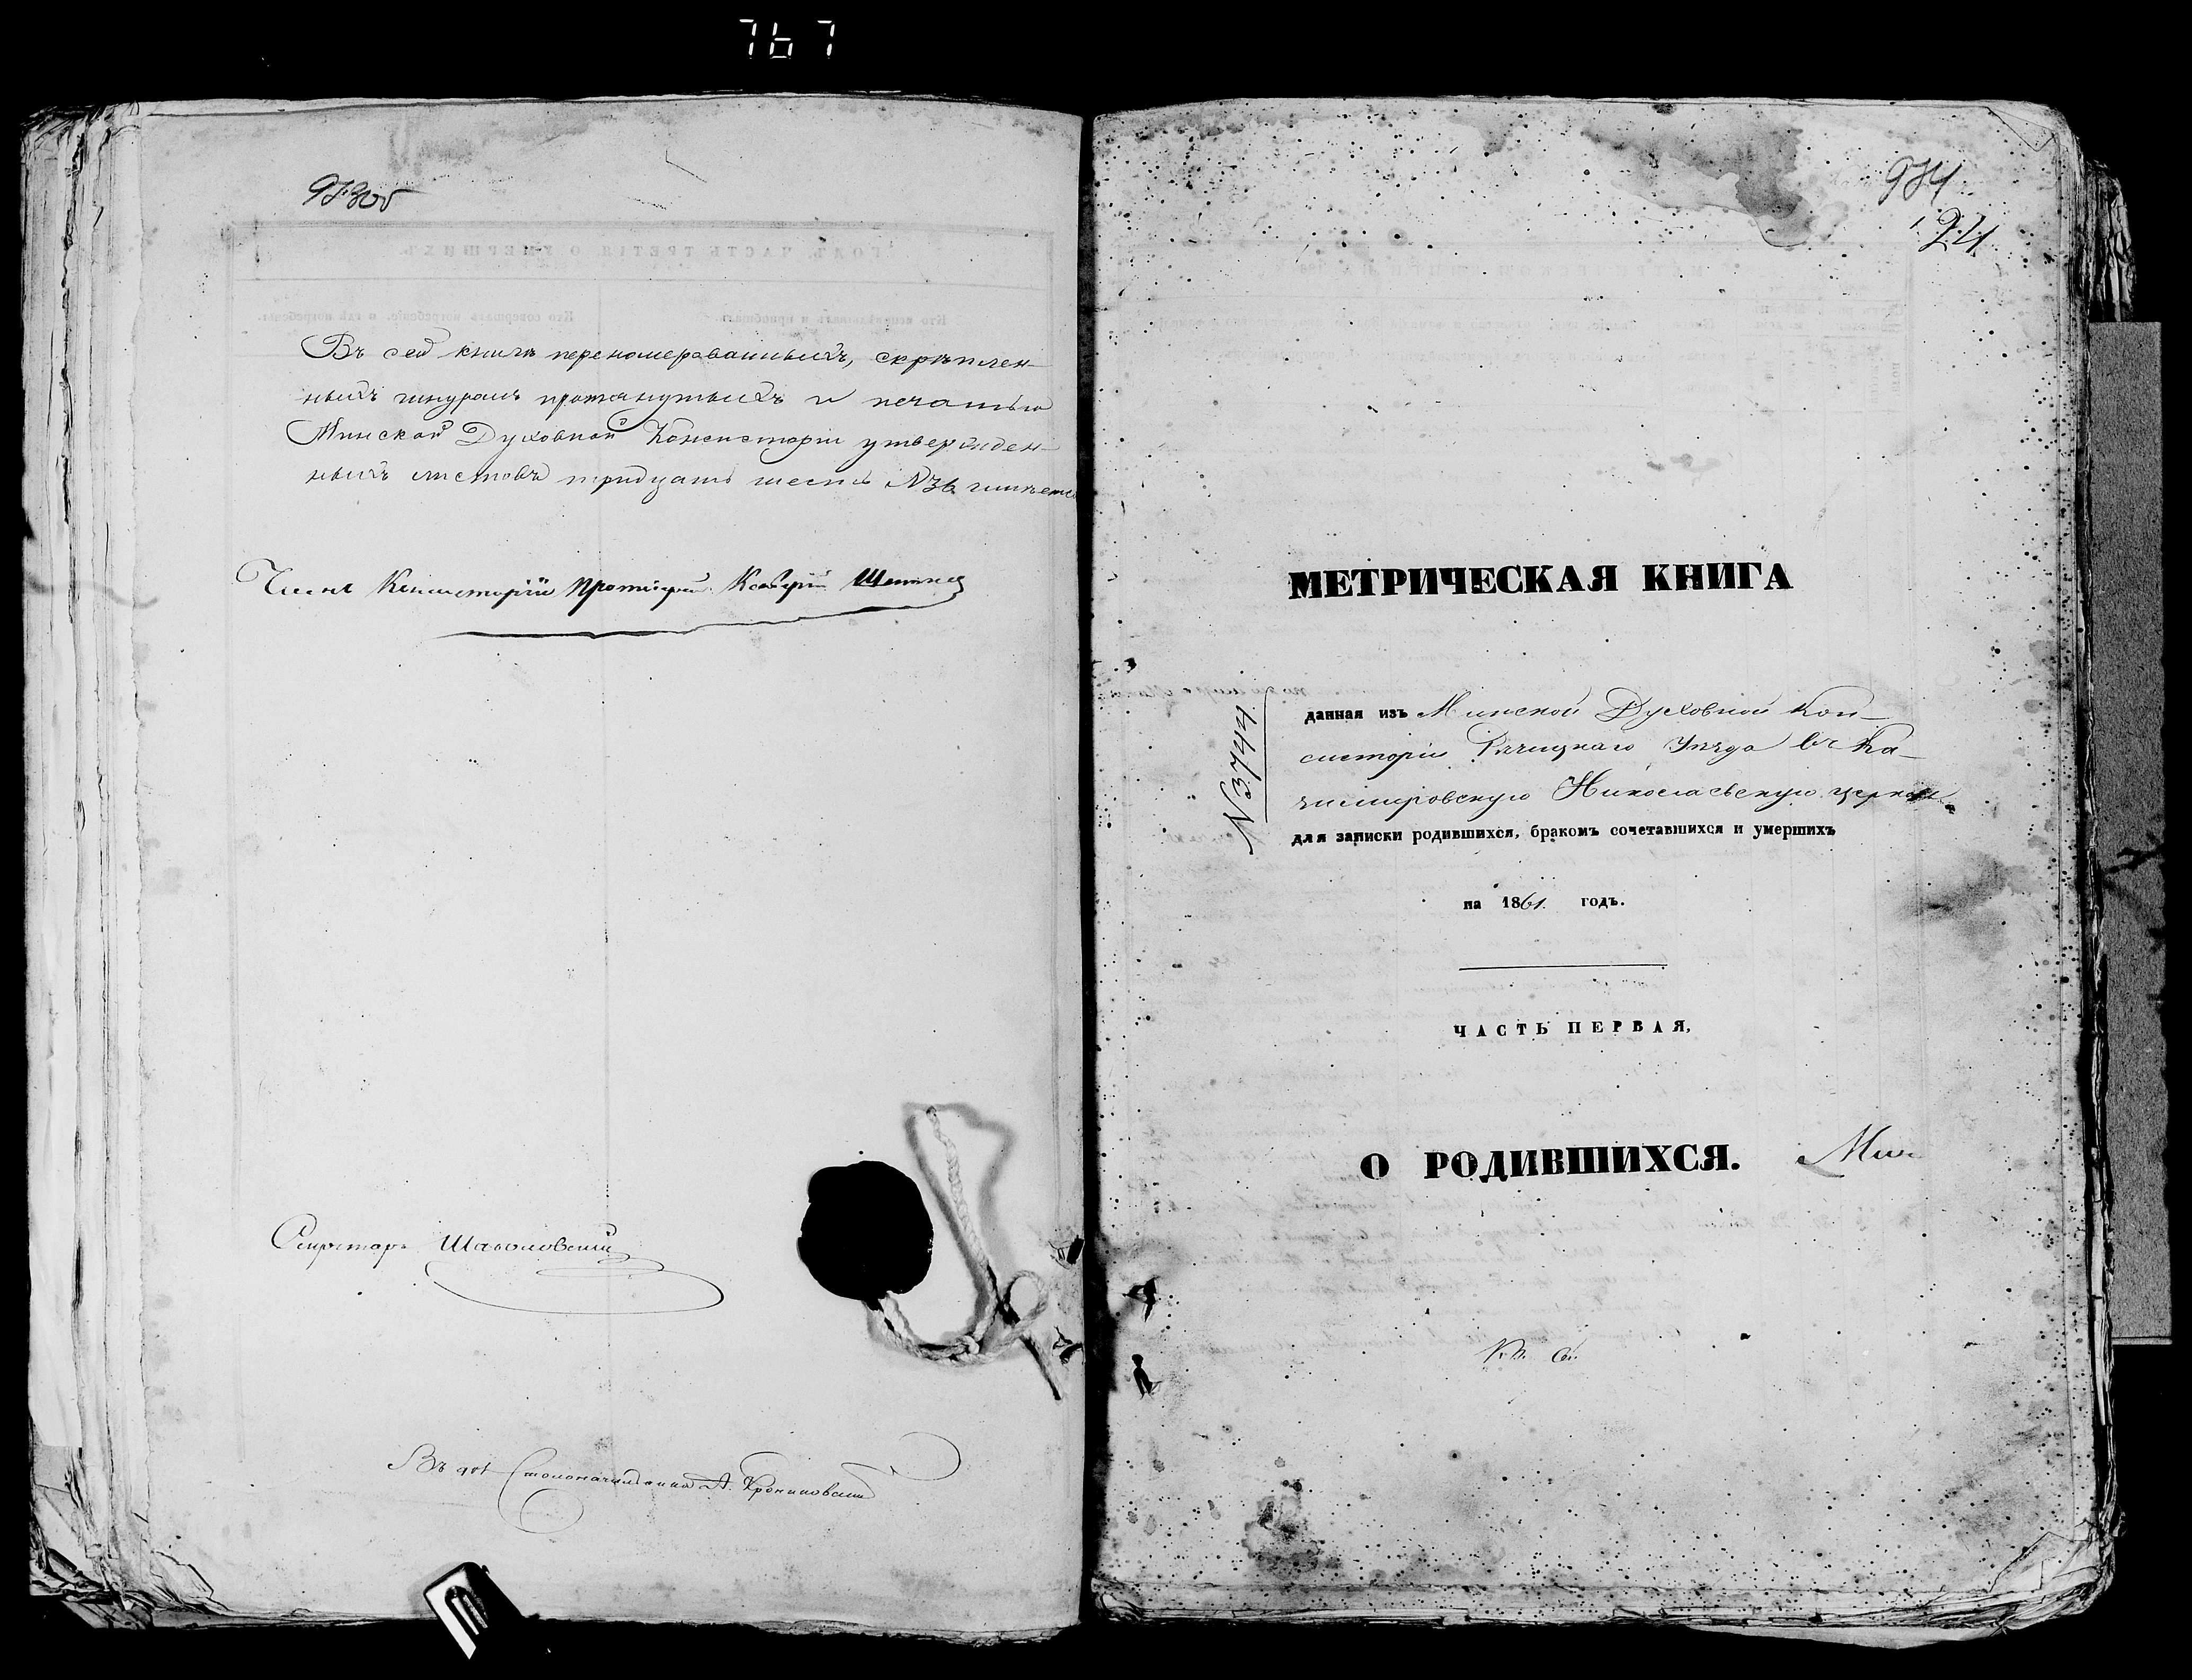 767
973об
Въ сей книгѣ перенумерованныхъ, скрѣплен-
ныхъ шнуромъ протянутыхъ и печатью
Минской Духовной Консисторіи утвержден-
ныхъ листовъ тридцать шесть №36
Членъ Консисторіи Протоіерей
Секретарь
Столоначальника А.
974
24
МЕТРИЧЕСКАЯ КНИГА
№3744
данная изъ Минской Духовной Кон-
систоріи Рѣчицкаго Уѣзда въ Ка-
зимировскую Николаевскую церковь
для записки родившихся, бракомъ сочетавшихся и умершихъ
на 1861. годъ.
ЧАСТЬ ПЕРВАЯ,
О РОДИВШИХСЯ.
Мин